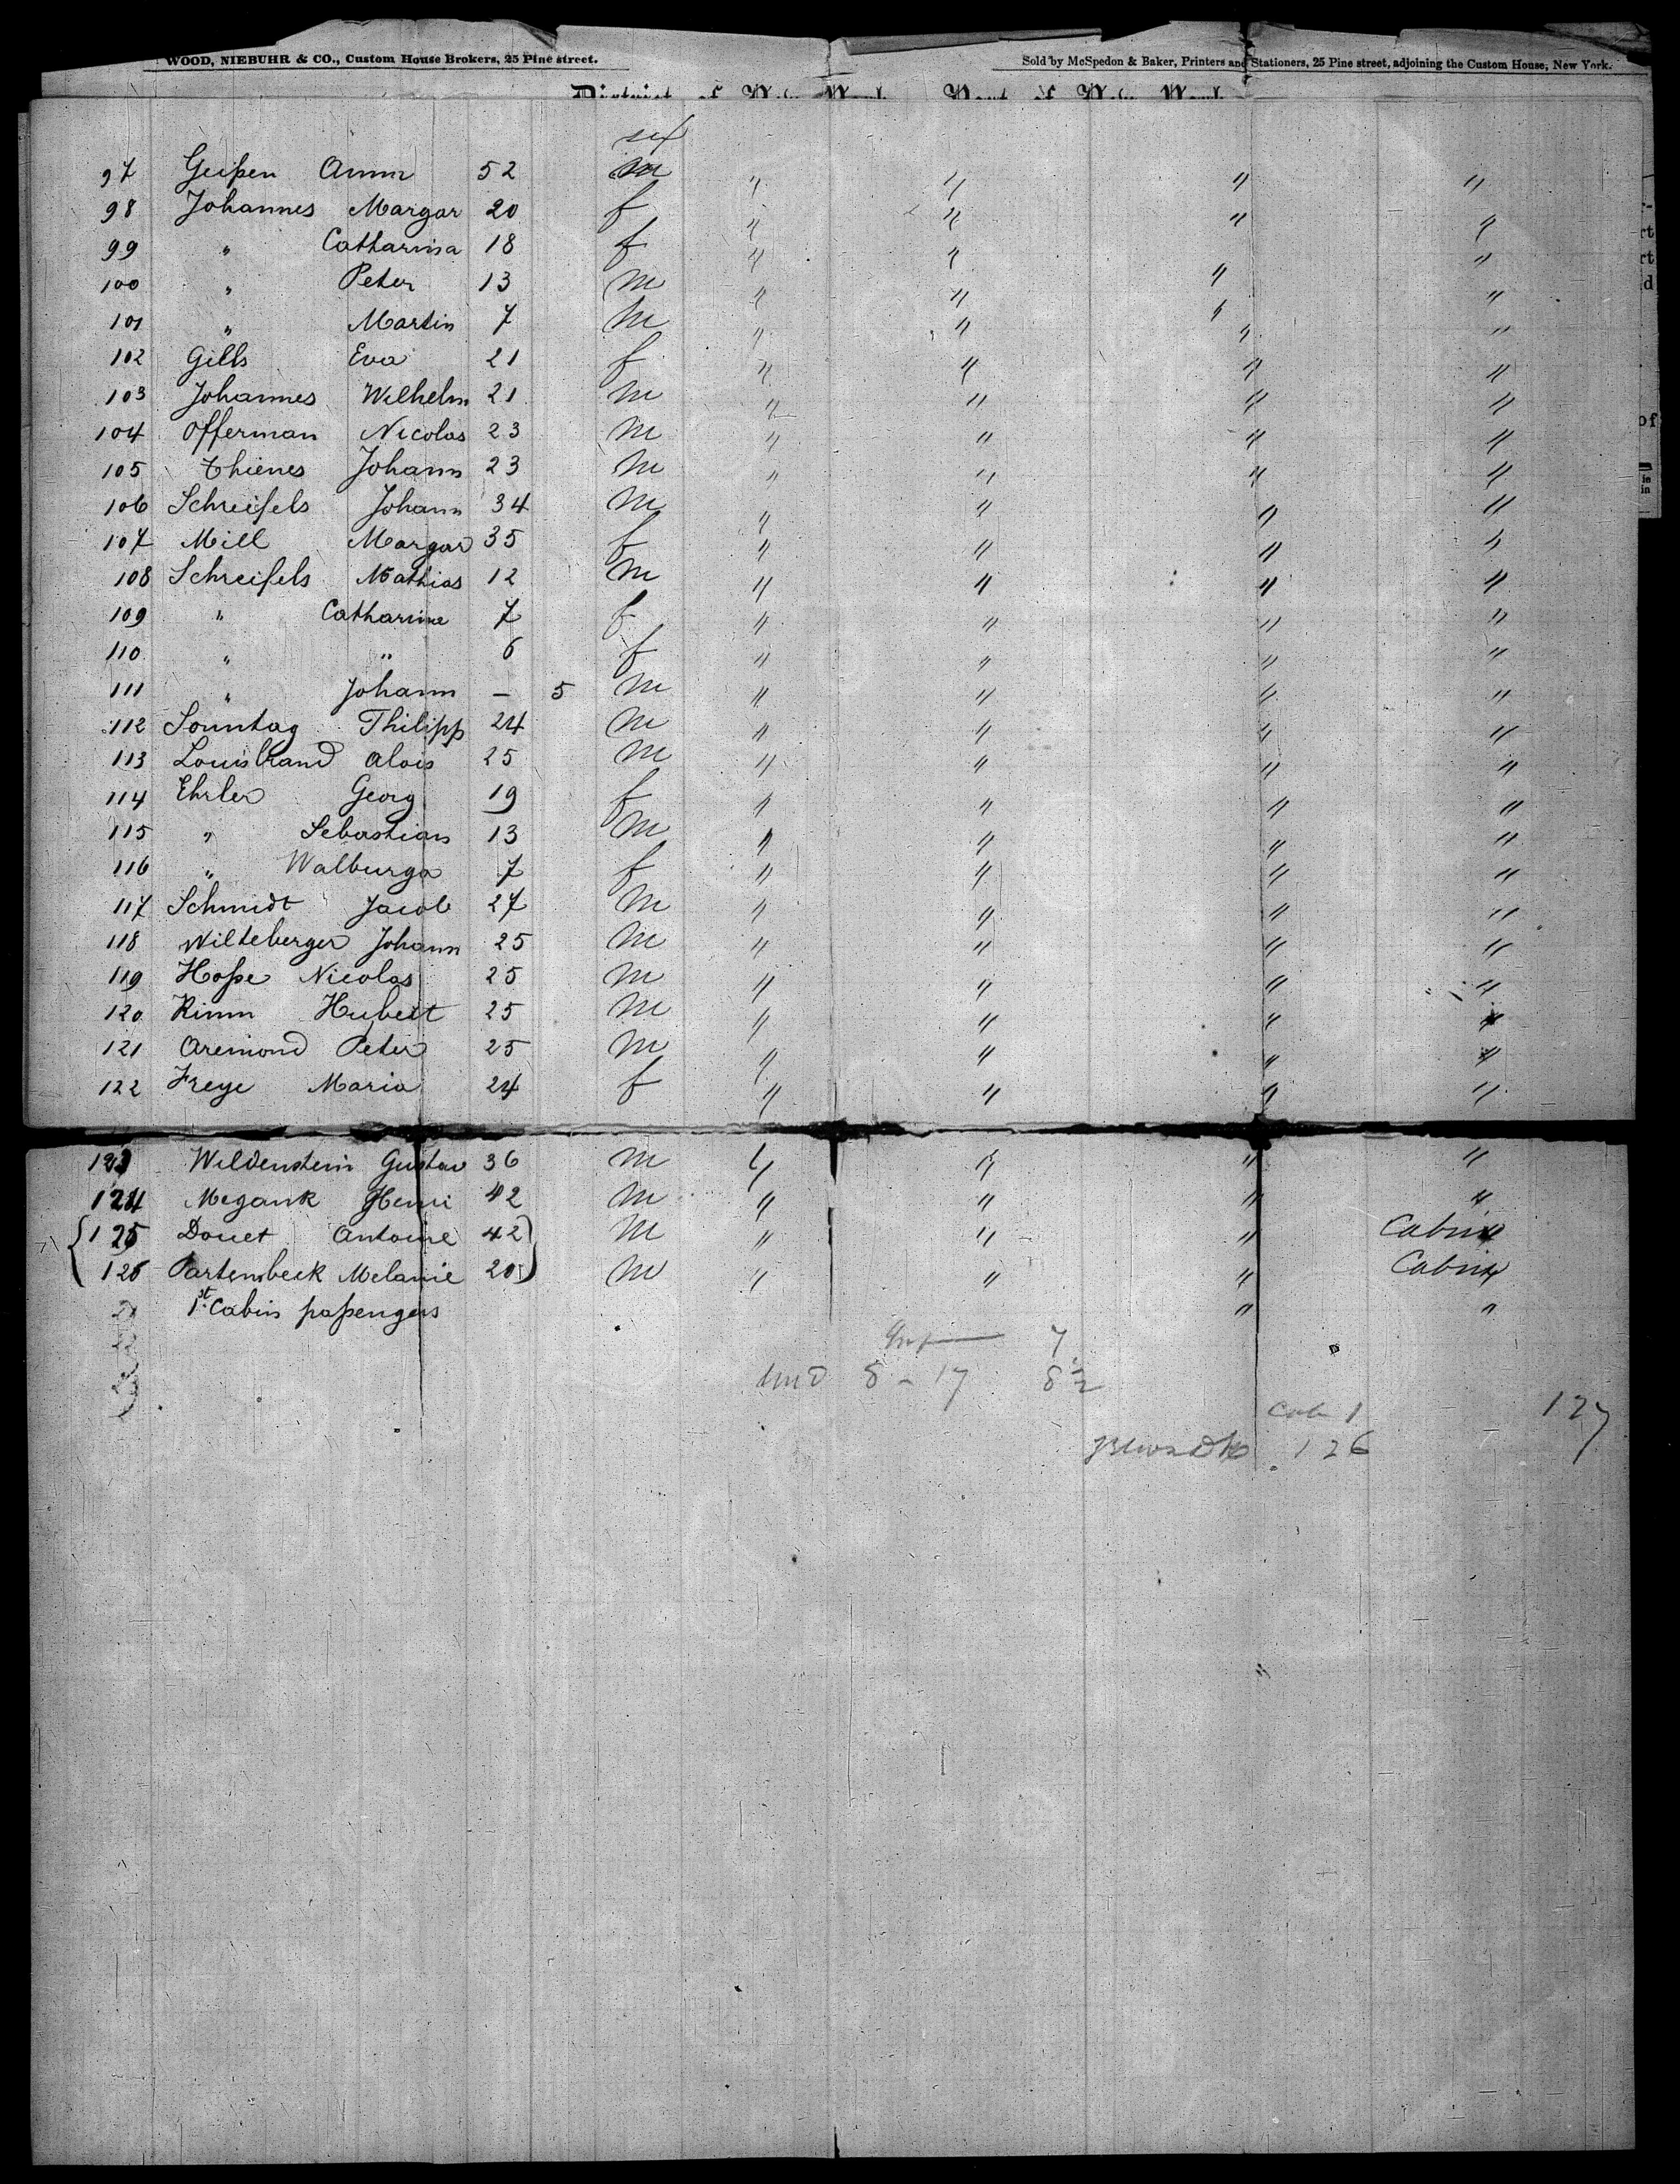 WOOD, NIEBUHR & CO., Custom House Brokers, 25 Pine street.
Sold by McSpedon & Baker, Printers and Stationers, 25 Pine street, adjoining the Custom House, New York.
District of New York Port of New York
sex
97 Geißen Anna 52 m " " " "
98 Johannes Margar 20 f " " " "
99 " Catharina 18 f " " " "
100 " Peter 13 m " " " "
101 " Martin 7 m " " " "
102 Gills Eva 21 f " " " "
103 Johannes Wilhelm 21 m " " " "
104 Offerman Nicolas 23 m " " " "
105 Thienes Johann 23 m " " " "
106 Schreifels Johann 34 m " " " "
107 Mill Margar 35 f " " " "
108 Schreifels Mathias 12 m " " " "
109 " Catharine 7 f " " " "
110 " " 6 f " " " "
111 " Johann – 5 m " " " "
112 Sonntag Philipp 24 m " " " "
113 Louisbrand Alois 25 m " " " "
114 Ehrler Georg 19 f " " " "
115 " Sebastian 13 m " " " "
116 " Walburga 7 f " " " "
117 Schmidt Jacob 27 m " " " "
118 Wilteberger Johann 25 m " " " "
119 Hoße Nicolas 25 m " " " "
120 Rimm Hubert 25 m " " " "
121 Aremond Peter 25 m " " " "
122 Freye Maria 24 f " " " "
123 Wildenstein Gustav 36 m " " " "
124 Megank Henri 42 m " " " "
125 Douet Antoine 42 m " " " Cabin
126 Partembeck Melanie 20 m " " " Cabin
1st Cabin paßengers " "
7
und 8 – 17 8 1/2
Cab 1 127
126